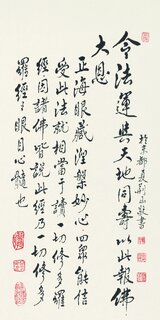 令法運與天地同壽以此報佛
大恩
正法眼藏涅槃妙心四眾能信
受此法就相當于讀一切修多羅
經因諸佛皆說此經乃一切修多
羅經之眼目心髓也
於京都